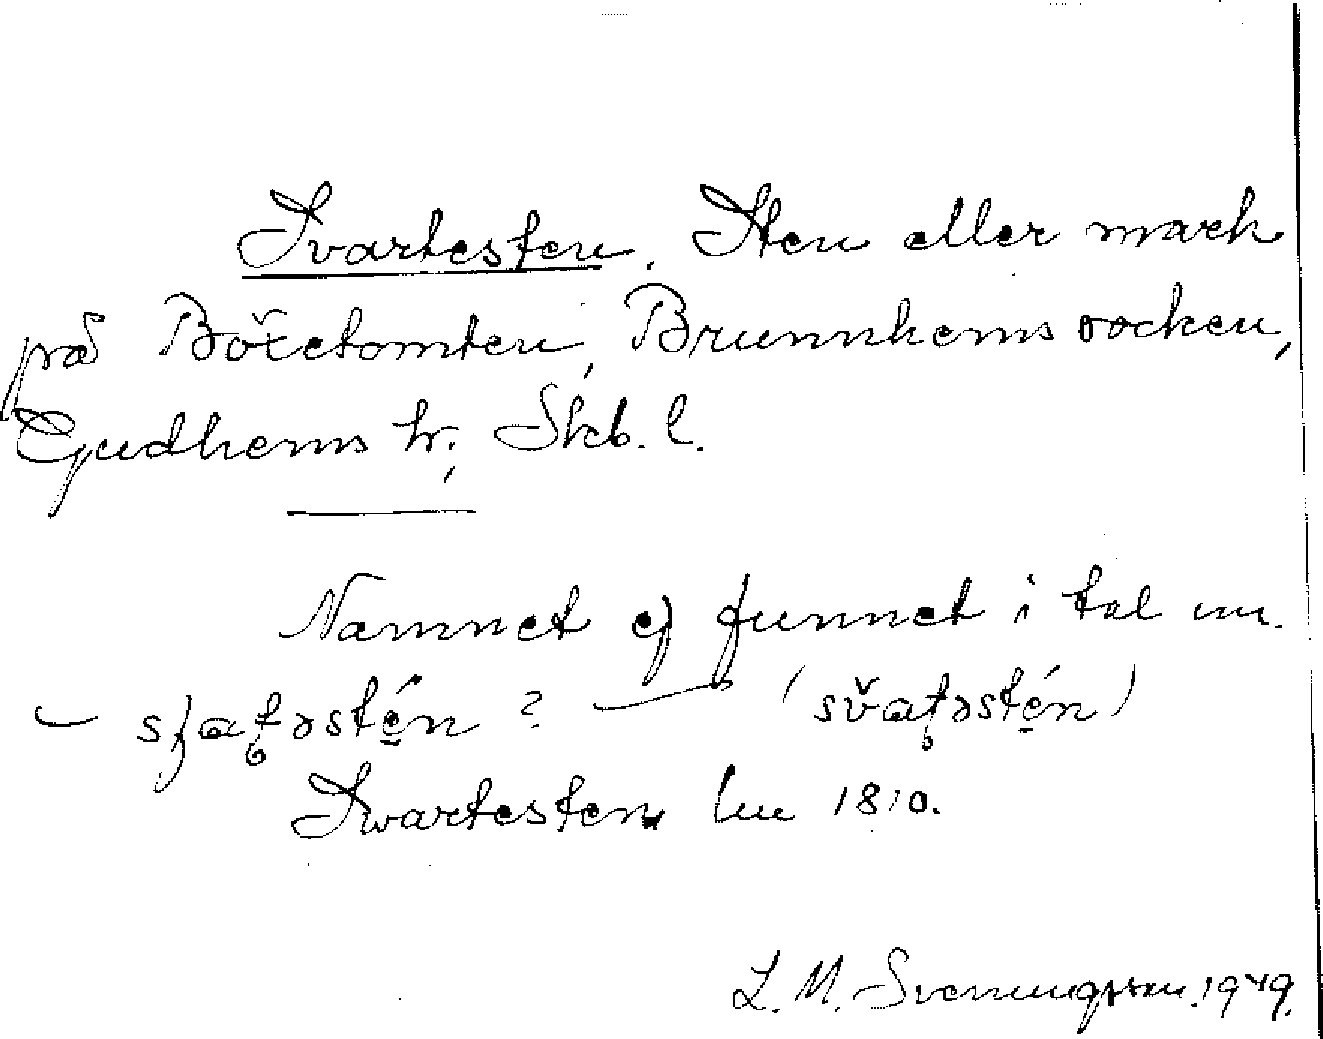 Svartesten. Sten eller mark
på Böretomten, Brunnhems socken,
Gudhems hr., Skb. l.
Namnet ej funnet i tal nu.
– ? – 
Swartesten Lm 1810.
L. M. Svenungsson. 1949.